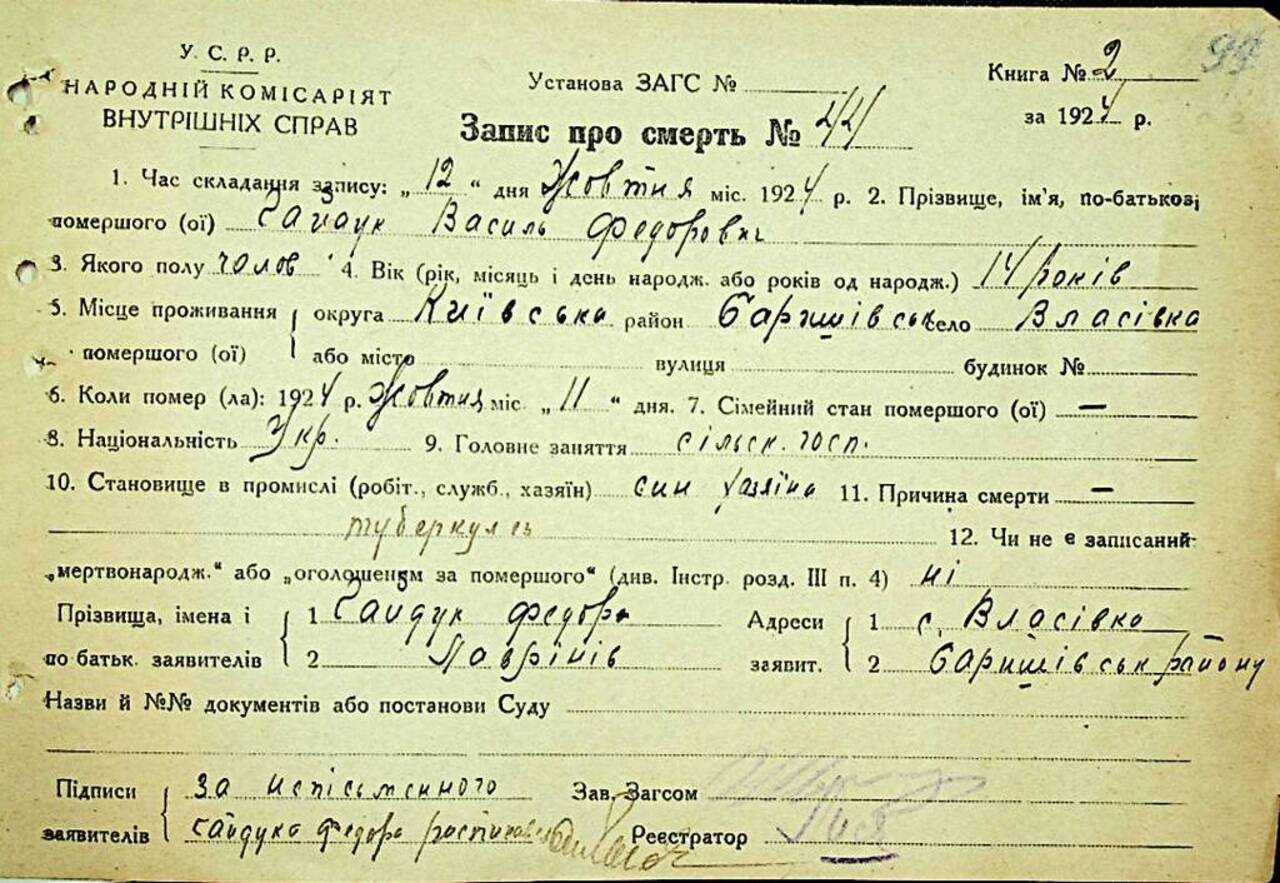 У. С. Р. Р.
НАРОДНІЙ КОМІСАРІЯТ
ВНУТРІШНІХ СПРАВ
Установа ЗАГС №
Книга № 2
за 1924 р.
99
Запис про смерть № 44
1. Час складання запису: „12“ дня Жовтня міс. 1924 р. 2. Прізвище, ім'я, по-батькові
помершого (ої) Сайдук Василь Федорович
3. Якого полу чолов 4. Вік (рік, місяць і день народж. або років од народж.) 14 років
5. Місце проживання округа Київська район Баришівськ село Власівка
помершого (ої) або місто вулиця будинок №
6. Коли помер (ла): 1924 р. Жовтня міс. „11“ дня. 7. Сімейний стан помершого (ої) —
8. Національність Укр. 9. Головне заняття сільск. госп.
10. Становище в промислі (робіт., служб., хазяїн) син хазяїна 11. Причина смерти —
туберкульоз 12. Чи не є записаний
„мертвонародж.“ або „оголошеним за помершого“ (див. Інстр. розд. III п. 4) ні
Прізвища, імена і 1 Сайдук Федора Адреси 1 с. Власівка
по батьк. заявителів 2 Лаврінів заявит. 2 Баришівськ району
Назви й №№ документів або постанови Суду
Підписи за неписьменного Зав. Загсом
заявителів Сайдука Федора Реєстратор